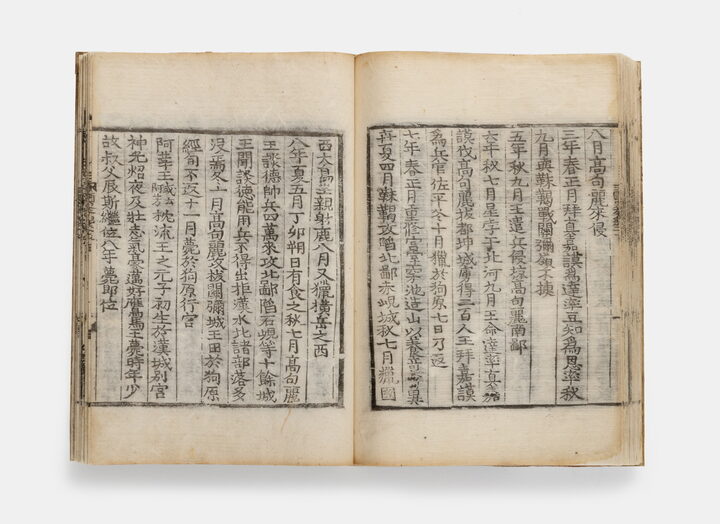 八月高句麗來侵
三年春正月拜真嘉謨爲達率豆知爲恩率秋
九月與靺鞨戰關彌嶺不捷
五年秋九月王遣兵侵掠高句麗南鄙
六年秋七月星孛于北河九月王命達率真嘉
謨伐高句麗拔都坤城虜得二百人王拜嘉謨
爲兵官佐平冬十月獵於狗原七日乃返
七年春正月重修宮室穿池造山以養奇禽異
卉夏四月靺鞨攻陷北鄙赤峴城秋七月獵國
西大島王親射鹿八月又獵橫岳之西
八年夏五月丁卯朔日有食之秋七月高句麗
王談德帥兵四萬來攻北鄙陷石峴等十餘城
王聞談德能用兵不得出拒漢水北諸部落多
沒焉冬十月高句麗攻拔關彌城王田於狗原
經旬不返十一月薨於狗原行宮
阿莘王或云阿芳枕流王之元子初生於漢城別宮
神光炤夜及壯志氣豪邁好鷹馬王薨時年少
故叔父辰斯繼位八年薨即位